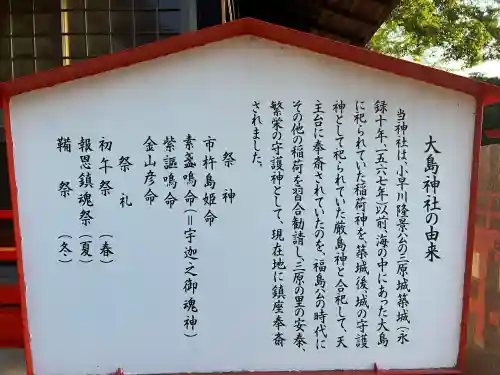 大島神社の由来
当神社は、小早川隆景公の三原城築城（永
録十年、一五六七年）以前、海の中にあった大島
に祀られていた稲荷神を、築城後、城の守護
神として祀られていた厳島神と合祀して、天
主台に奉斎されていたのを、福島公の時代に
その他の稲荷を習合勧請し、三原の里の安泰、
繁栄の守護神として、現在地に鎮座奉斎
されました。
祭神
市杵島姫命
素盞嗚命（＝宇迦之御魂神）
紫謳鳴命
金山彦命
祭礼
初午祭（春）
報恩鎮魂祭（夏）
鞴祭（冬）